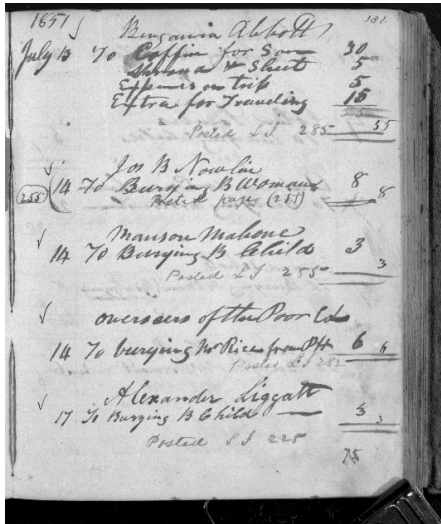 1851 181
Benjamin Abbott
July 13 To Coffin for Son 30
Shroud & Sheet 5
Expenses on trip 5
Extra for Traveling 15
55
Posted LJ 285 55
Jos B Nowlin
255 14 To Burying B Woman 8
page (255) 8
Manson Mahone
14 To Burying B Child 3
Posted LJ 255 3
overseers of the Poor
14 To burying Mr Rice from PH 6
Posted LJ 282 6
Alexander Liggatt
17 To Burying B Child 3
3
Posted LJ 225
75